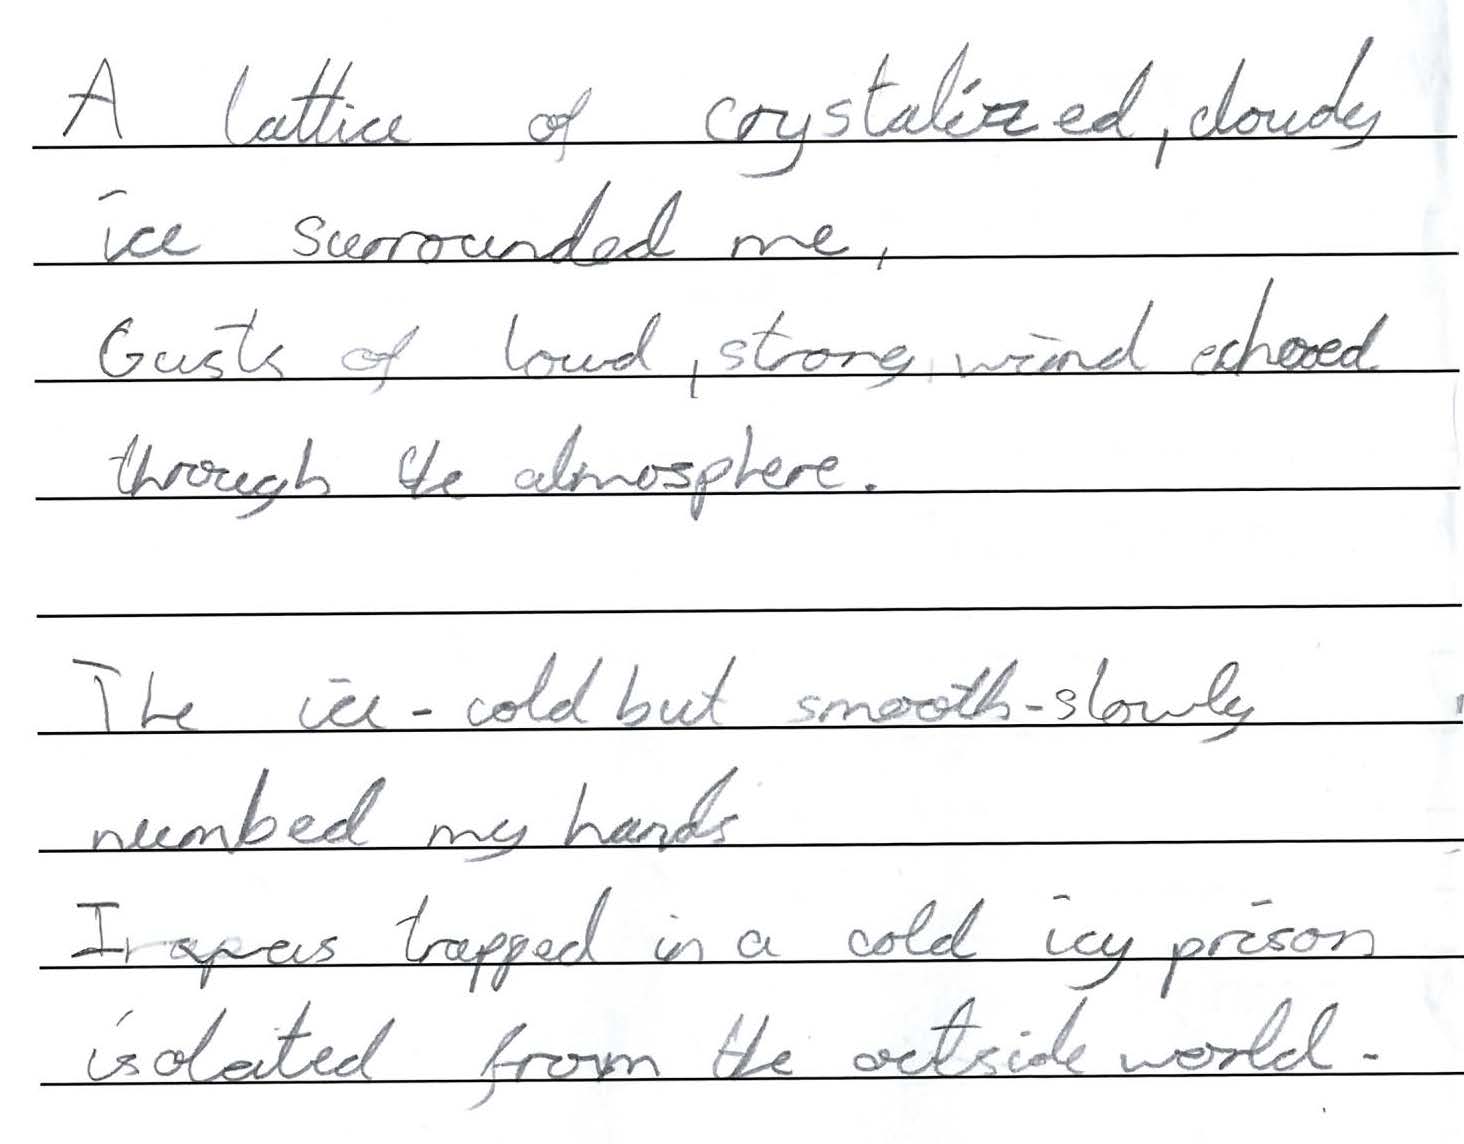 A lattice of crystalized, cloudy
ice surrounded me,
Gusts of loud, strong, wind echoed
through the atmosphere.
The ice-cold but smooth-slowly
numbed my hands
I was trapped in a cold icy prison
isolated from the outside world.